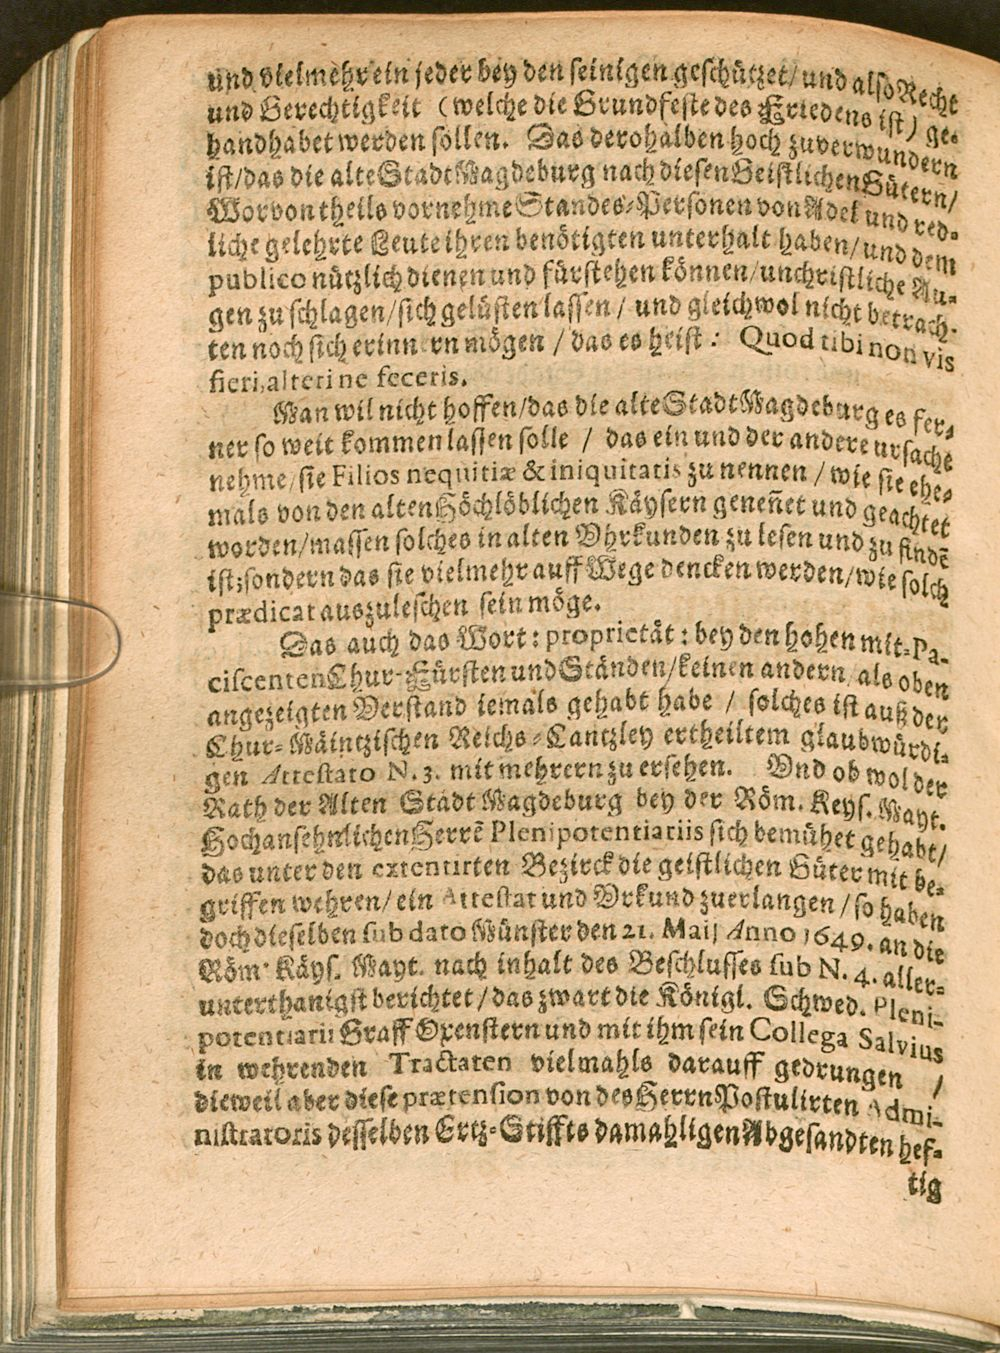 und vielmehr ein jeder bey den seinigen geschützet/ und also Recht
und Gerechtigkeit (welche die Grundfeste des Friedens ist) ge-
handhabet werden sollen. Das derohalben hoch zuverwundern
ist/das die alte Stadt Magdeburg nach diesen Geistlichen Gütern/
Worvon theils vornehme Standes-Personen von Adel und red-
liche gelehrte Leute ihren benötigten unterhalt haben/und dem
publico nützlich dienen und fürstehen können/unchristliche Au-
gen zu schlagen/sich gelüsten lassen/ und gleichwol nicht betrach-
ten noch sich erinnern mögen / das es heist: Quod tibi non vis
fieri, alteri ne feceris.
Man wil nicht hoffen/das die alte Stadt Magdeburg es fer-
ner so weit kommen lassen solle / das ein und der andere ursache
nehme/sie Filios nequitiæ & iniquitatis zu nennen / wie sie ehe-
mals von den alten Höchlöblichen Käysern geneñet und geachtet
worden/massen solches in alten Vhrkunden zu lesen und zu findẽ
ist;sondern das sie vielmehr auff Wege dencken werden/wie solch
prædicat auszuleschen sein möge.
Das auch das Wort: proprietät: bey den hohen mit-Pa-
ciscenten Chur-Fürsten und Ständen/keinen andern/als oben
angezeigten Verstand iemals gehabt habe / solches ist auß der
Chur-Mäintzischen Reichs-Cantzley ertheiltem glaubwürdi-
gen Attestato N. 3. mit mehrern zu ersehen. Vnd ob wol der
Rath der Alten Stadt Magdeburg bey der Röm. Keys. Mayt.
Hochansehnlichen Herrẽ Plenipotentiariis sich bemühet gehabt/
das unter den extentirten Bezirck die geistlichen Güter mit be-
griffen wehren/ein Attestat und Vrkund zuerlangen/so haben
doch dieselben sub dato Münster den 21. Maij Anno 1649. an die
Röm. Käys. Mayt. nach inhalt des Beschlusses sub N. 4. aller-
unterthanigst berichtet/das zwart die Königl. Schwed. Pleni-
potentiarii Graff Oxenstern und mit ihm sein Collega Salvius
in wehrenden Tractaten vielmahls darauff gedrungen /
dieweil aber diese prætension von des Herrn Postulirten Admi-
nistratoris desselben Ertz-Stiffts damahligen Abgesandten hef-
tig